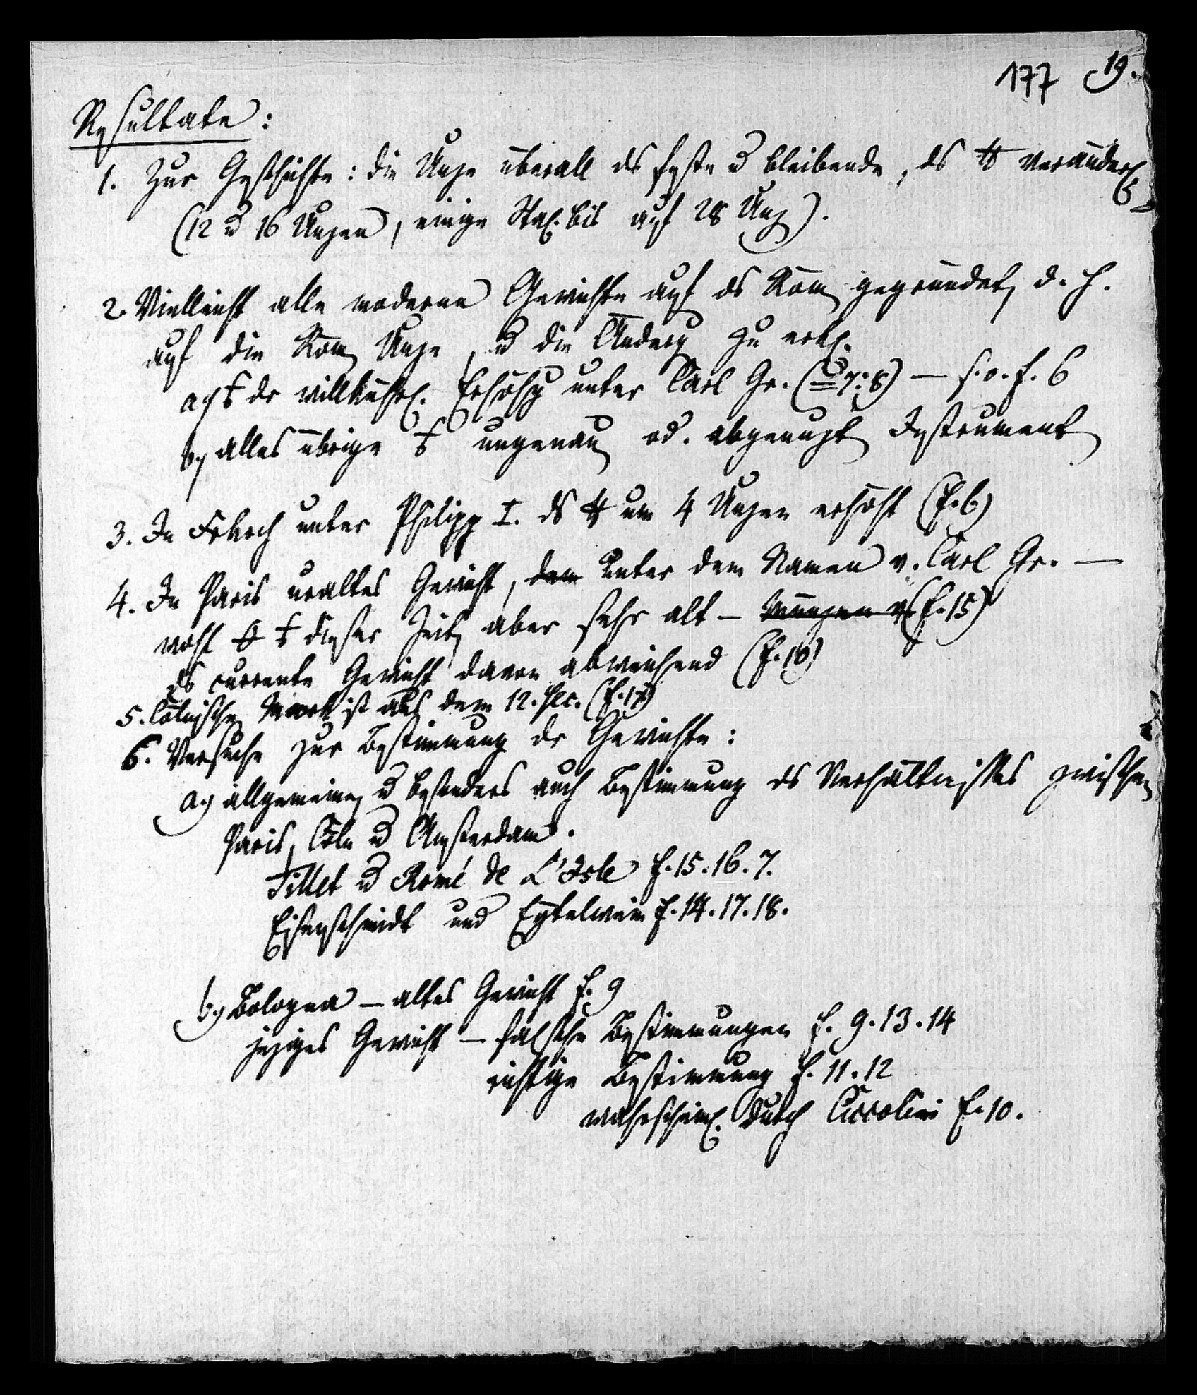 177 19.
Resultate:
1. Zur Geschichte: die Unze überall ds feste u bleibende, ds ℔ veränderl.
(12 u 16 Unzen), einige bis auf 28 Unz).
2. Vielleicht alle moderne Gewichte auf ds Röm. gegründet, d. h.
auf die Röm. Unze, u die Änderg zu erkl.
a) der willkührl. Erhöhg unter Carl Gr. (7:8) — s. o. f. 6
b) alles übrige ungenau od. abgenuzt Instrument
3. In unter Philipp I. ds ℔ um 4 Unzen erhöht (f. 6)
4. In Paris uraltes Gewicht, dem Unter dem Namen v. Carl Gr. —
wohl dieser Zeit, aber sehr alt — (f. 15)
ds currente Gewicht davon abweichend (f. 16)
5. Cölnische Mark ist aus dem 12. Sec. (f. 17)
6. Versuche zur Bestimmung der Gewichte:
a) allgemeine, u besonders auch Bestimmung ds Verhältnisses zwischen
Paris, Cöln u Amsterdam.
Tillet u Romé de L'Isle f. 15. 16. 7.
Eisenschmidt und Eytelwein f. 14. 17. 18.
b) Bologna — altes Gewicht f. 9
jeziges Gewicht — falsche Bestimmungen f. 9. 13. 14
richtige Bestimmung f. 11. 12
wahrscheinl. durch Ciccolini f. 10.